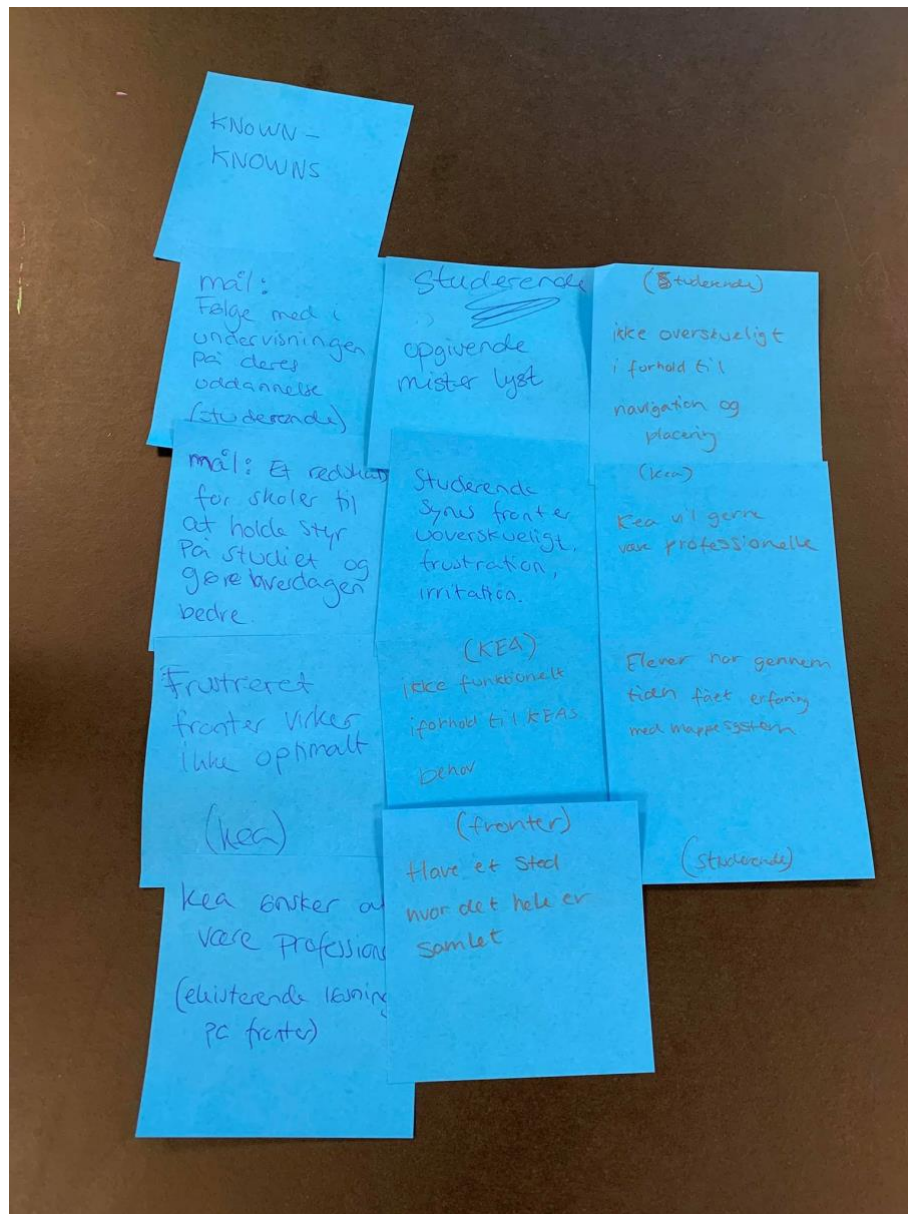 KNOWN -
KNOWNS
mål:
Følge med i
undervisningen
på deres
uddannelse
(studerende)
mål: Et redskab
for skoler til
at holde styr
på studiet og
gøre hverdagen
bedre.
Frustreret
fronter virker
ikke optimalt
(kea)
Kea ønsker at
være Profession
(eksisterende løsning
PC fronter)
Studerende
opgivende
mister lyst
Studerende
synes fronter
uoverskueligt,
frustration,
irritation.
(KEA)
ikke funktionelt
iforhold til KEAs
behov
(fronter)
Have et sted
hvor det hele er
samlet
(Studerende)
ikke overskueligt
i forhold til
navigation og
placering
(kea)
Kea vil gerne
være professionelle
Elever har gennem
tiden fået erfaring
med mappesystem
(studerende)